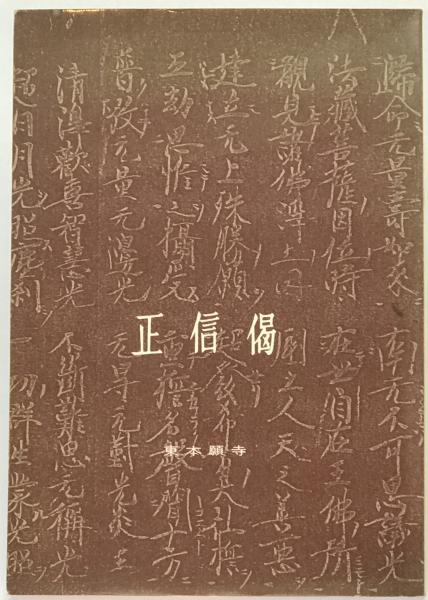 歸命无量壽如來 南无不可思議光
法藏菩薩因位時 在世自在王佛所
覩見諸佛淨土因 國土人天之善惡
建立无上殊勝願 超發希有大弘誓
五劫思惟之攝受 重誓名聲聞十方
普放无量无邊光 无㝵无對光炎王
清淨歡喜智慧光 不斷難思无稱光
超日月光照塵刹 一切群生蒙光照
正信偈
東本願寺